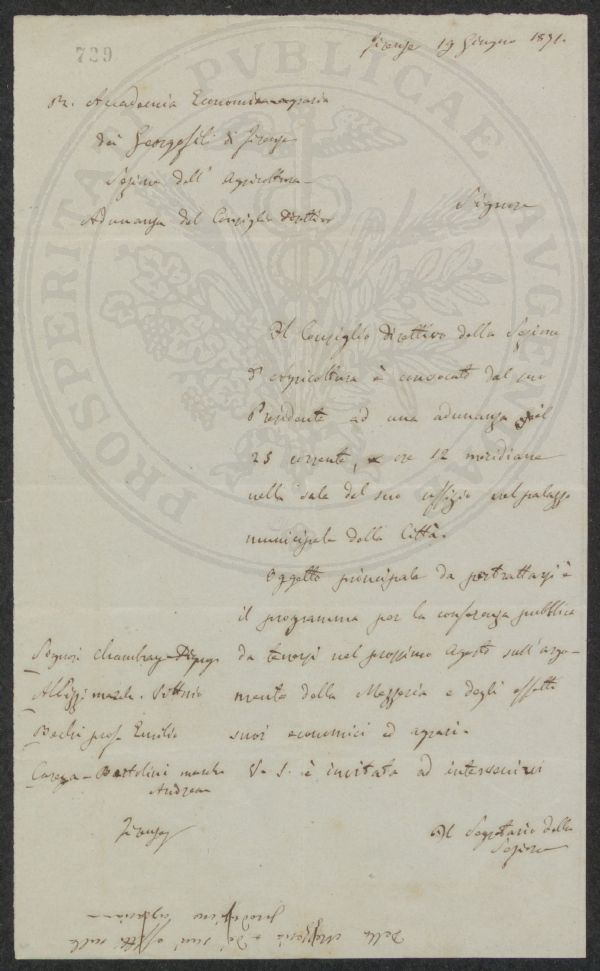 729
Firenze 19 Giugno 1871.
R. Accademia Economico-agraria
dei Georgofili di Firenze
Sezione dell' Agricoltura
Adunanza del Consiglio Direttivo
Signore
Il Consiglio Direttivo della Sezione
d'agricoltura è convocato dal suo
Presidente ad una adunanza pel
25 corrente, a ore 12 meridiane
nella sala del suo uffizio nel palazzo
municipale della Città.
Oggetto principale da pertrattarsi è
il programma per la conferenza pubblica
da tenersi nel prossimo Agosto sull'argo-
mento della Mezzeria e degli effetti
suoi economici ed agrari.
V. S. è invitata ad intervenirvi
Il Segretario della
Sezione
Signori Chambray-Digny
Albizzi march. Vittorio
Bechi prof. Emilio
Carega - Bartolini march.
Andrea
Firenze
Della Mezzeria e dei suoi effetti sulla
produzione
PROSPERITATI PVBLICAE AVGENDAE